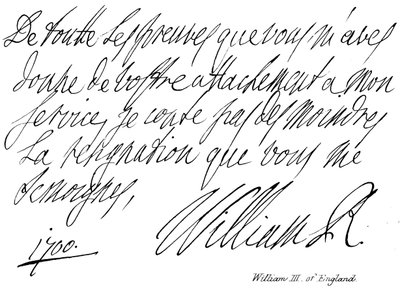 De toutte les preuves que vous m'aves
donne de vostre attachement à mon
service, je conte pas des moindres
la resignation que vous me
temoignes,
1700.
William R.
William III. of England.